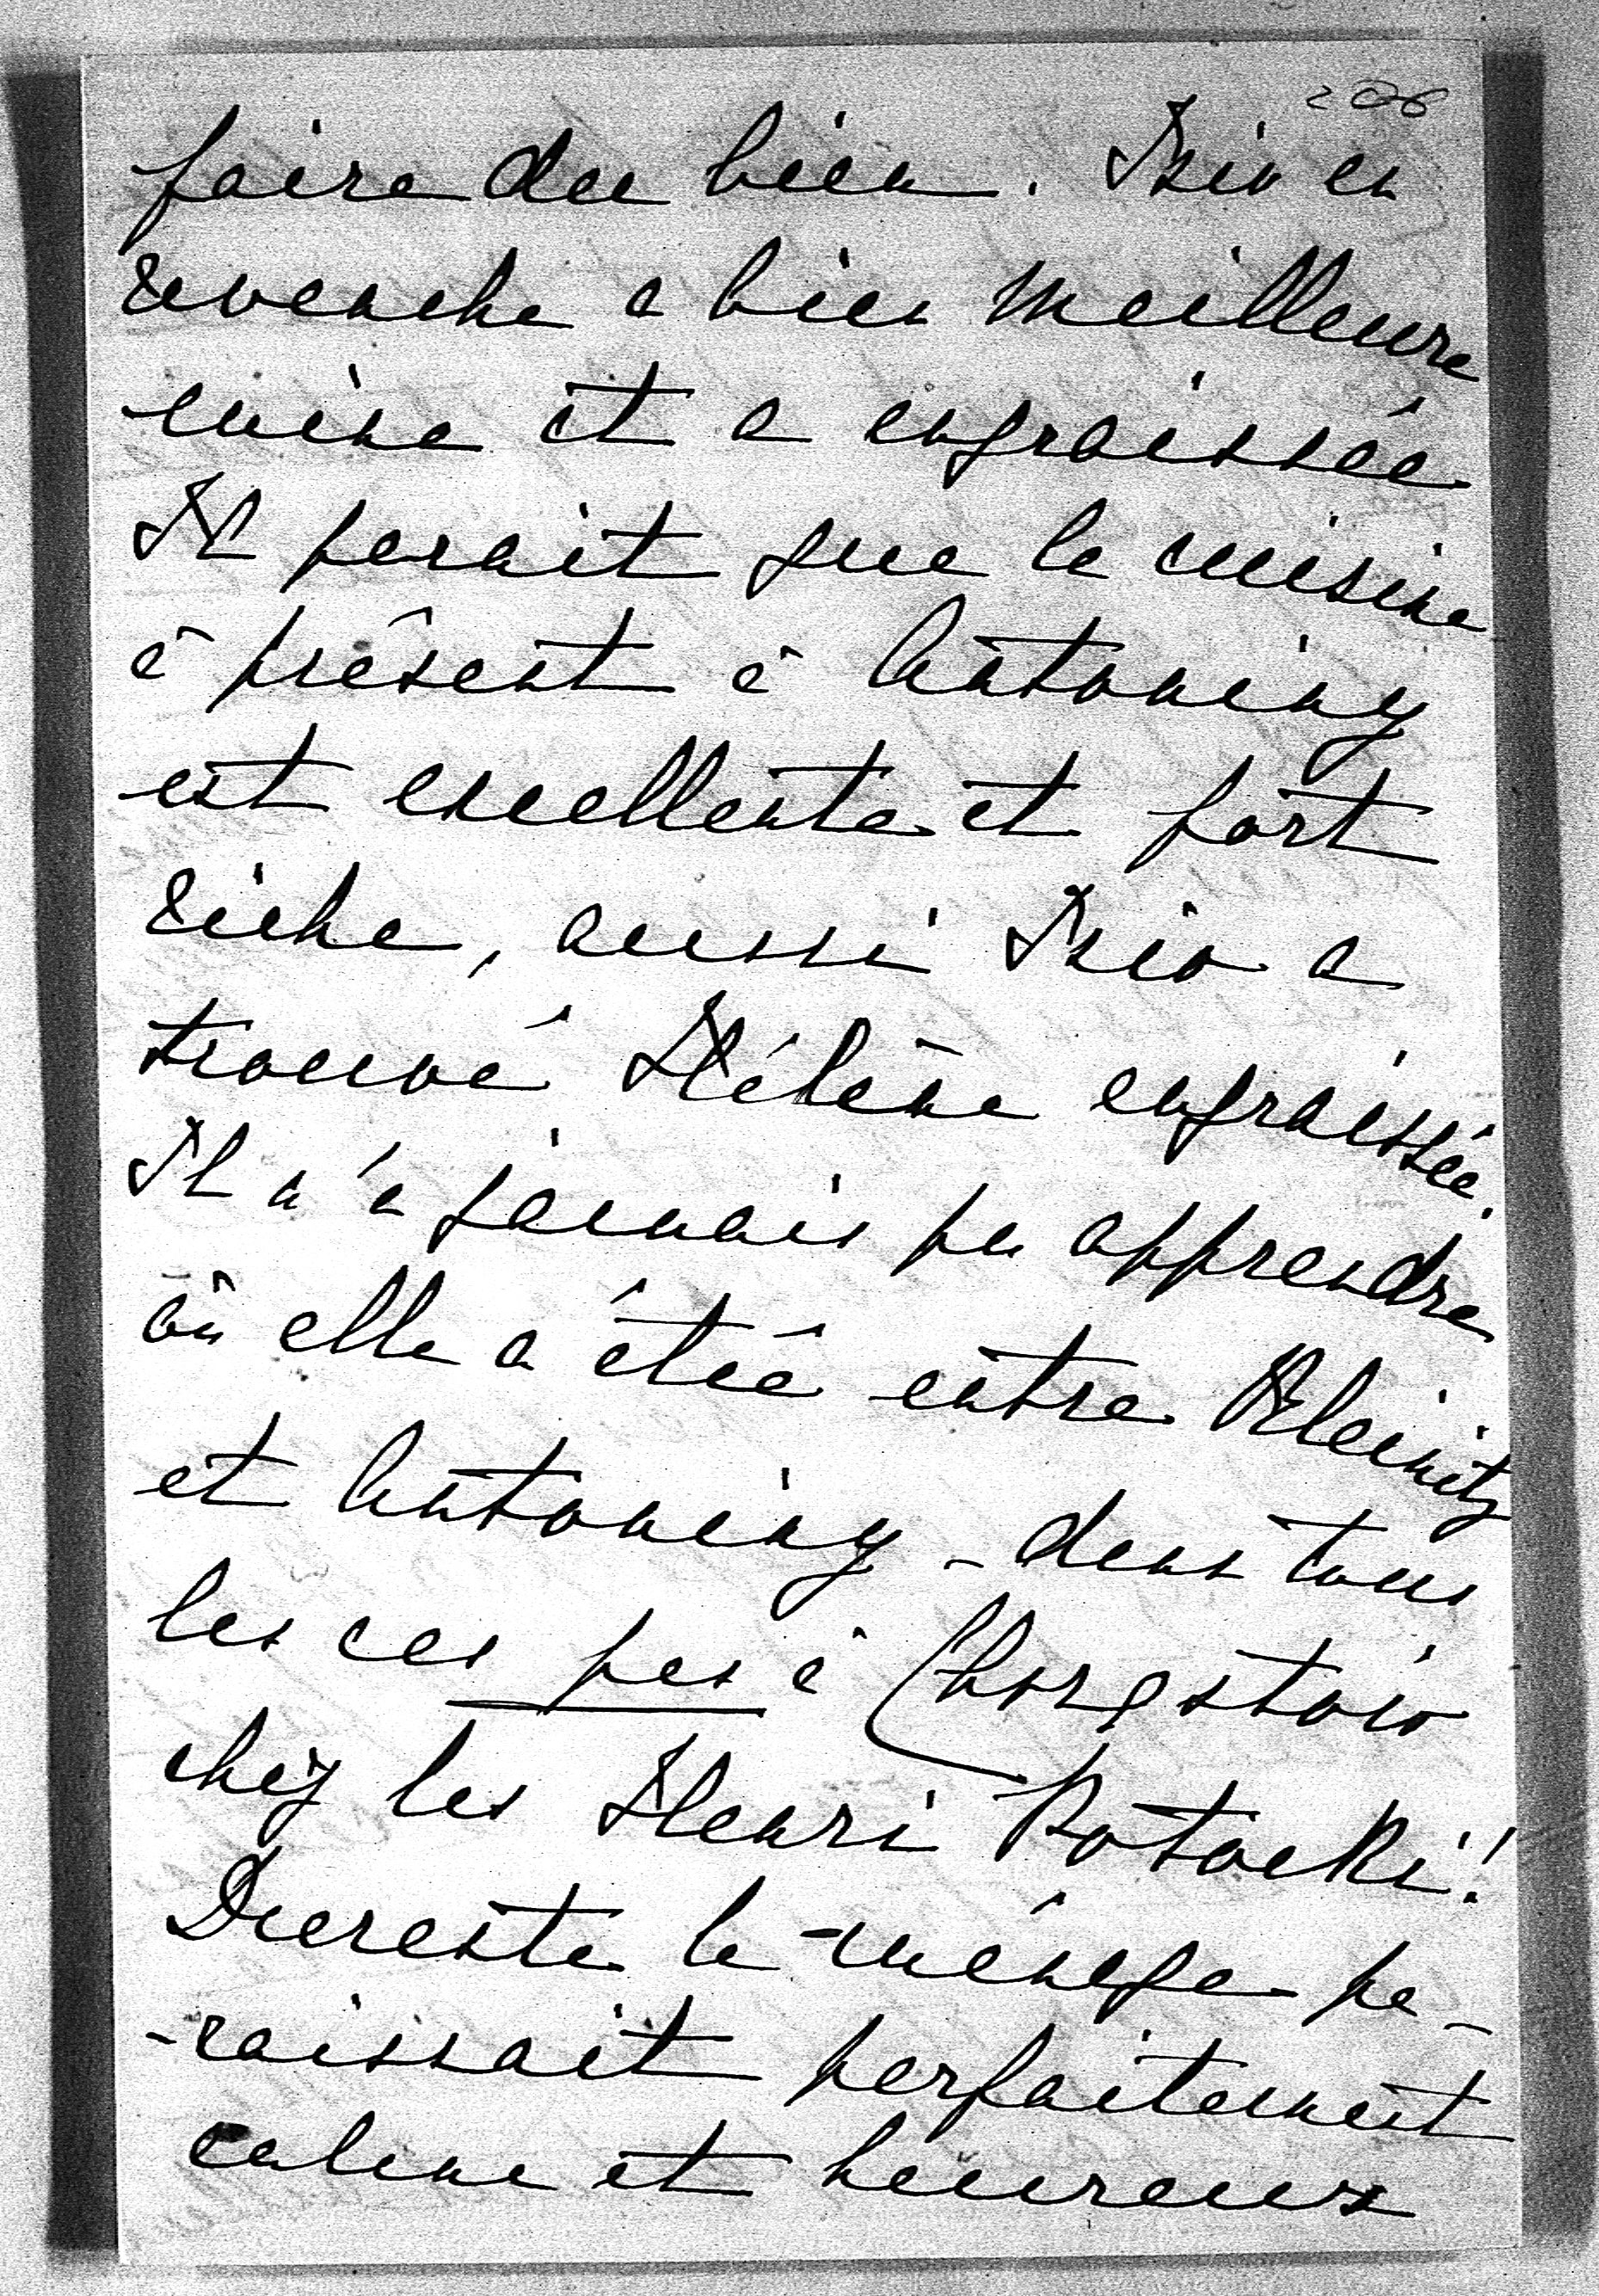 206
faire du bien. Isio en
revenche a bien meilleure
mine et a engraissée
Il parait que la cuisine
à présent à Antoniny
est excellente et fort
riche, aussi Isio a
trouvé Hélène engraissée.
Il n'a jamais pu apprendre
où elle a étée entre Kleinitz
et Antoniny - dans tous
les cas pas à Chrzestow
chez les Henri Potocki!
Dureste le ménage pa-
-raissait parfaitement
calme et heureux